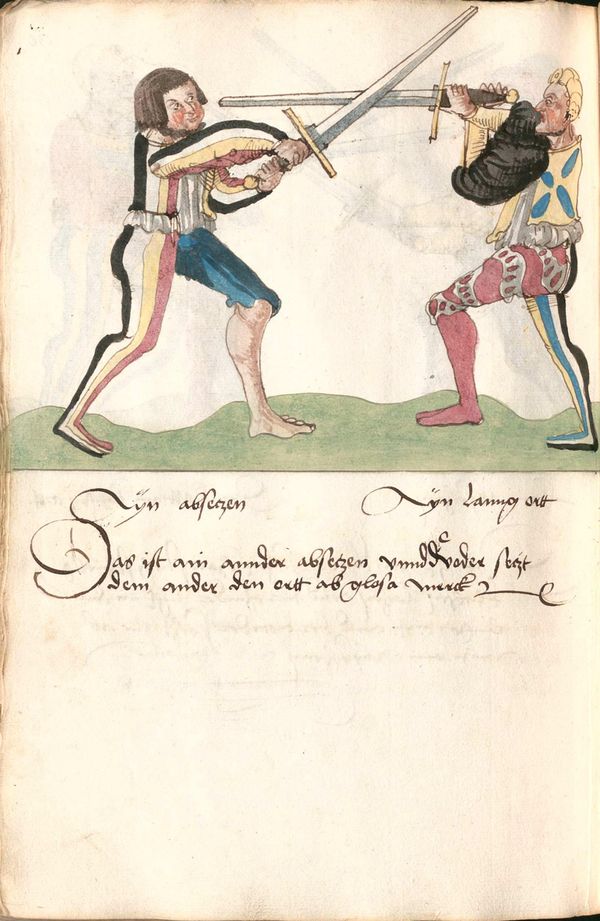 Ayn absetzen
Ayn lanng ortt
Das ist ain annder absetzen vnnd yeder setzt
dem ander den ortt ab glosa merck